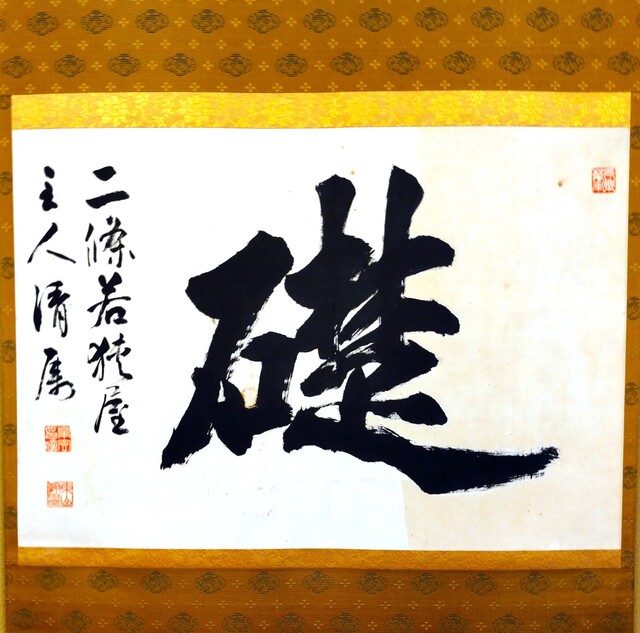 礎
二條若狹屋
主人清属